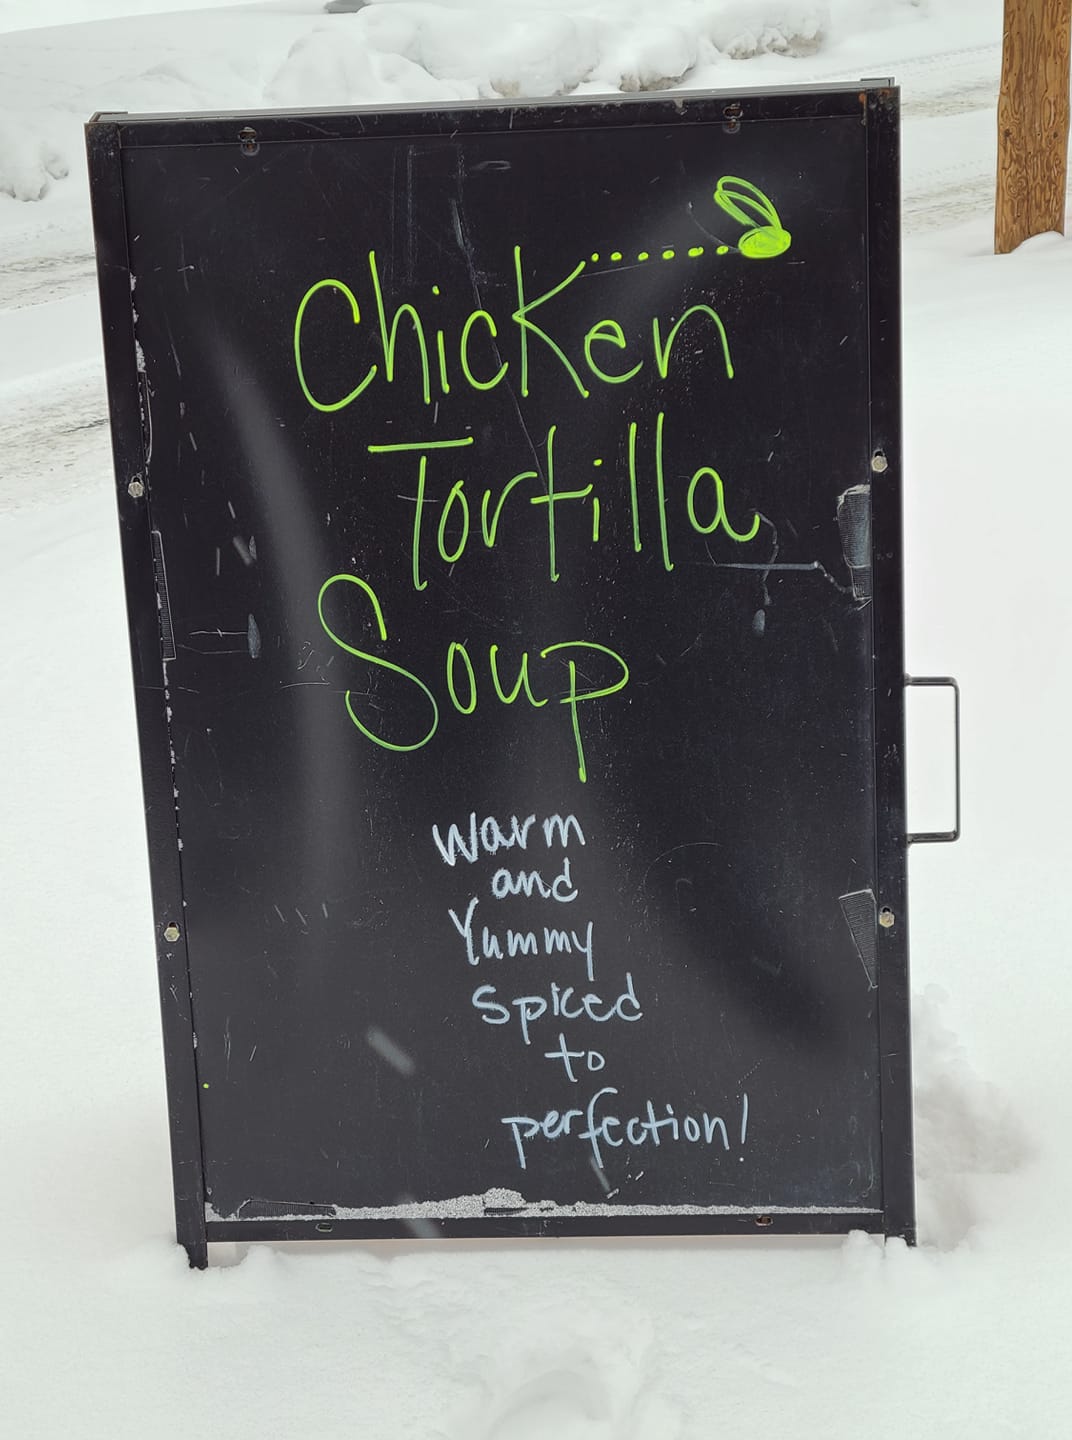 Chicken
Tortilla
Soup
Warm
and
Yummy
Spiced
to
perfection!